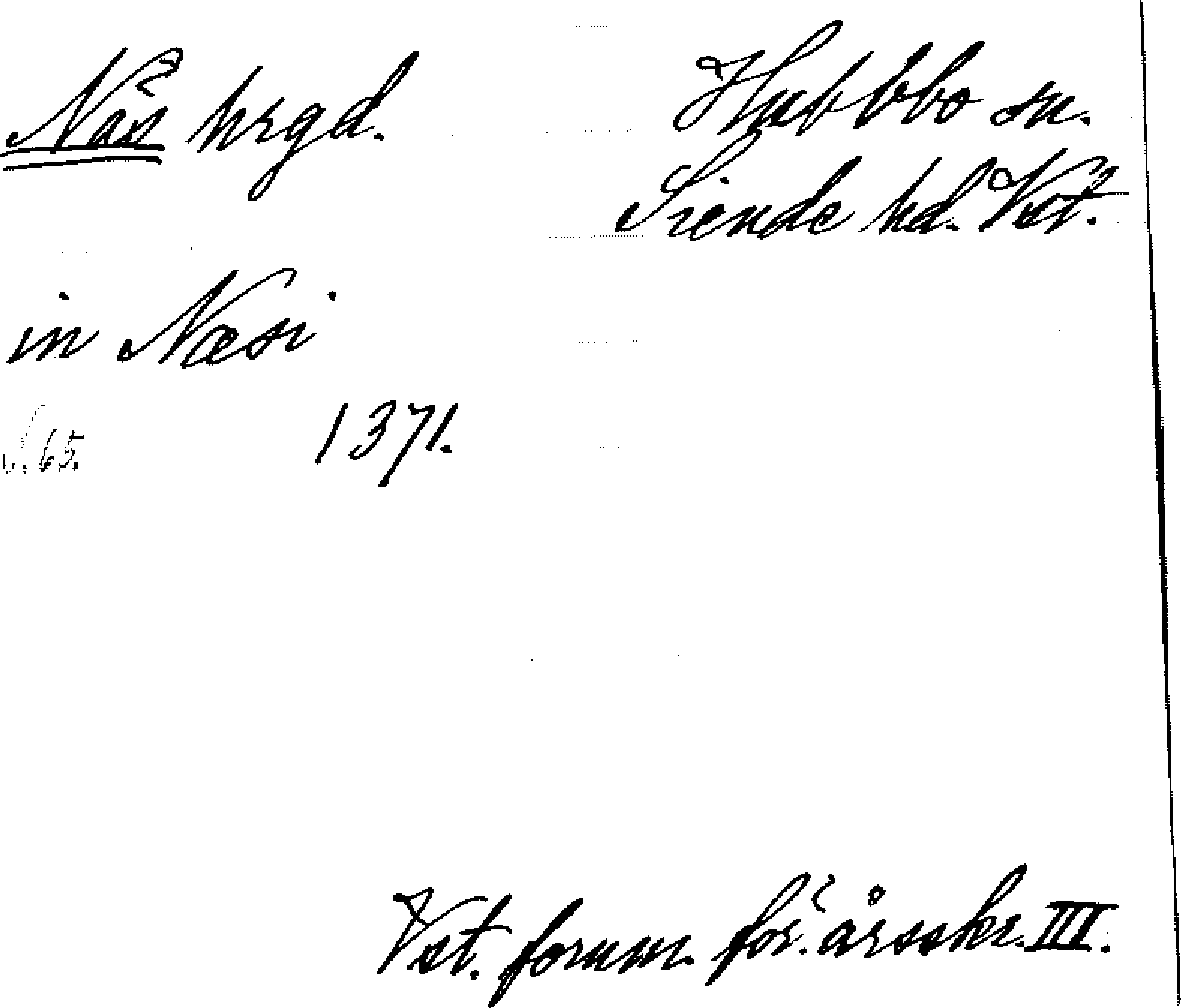 Näs hrgd.
Hubbbo sn.
Siende hd. Vst.
in Næsi
s. 65. 1371.
Vst. fornm. för. årsskr. III.